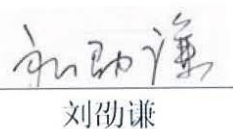 刘劭谦
刘劭谦